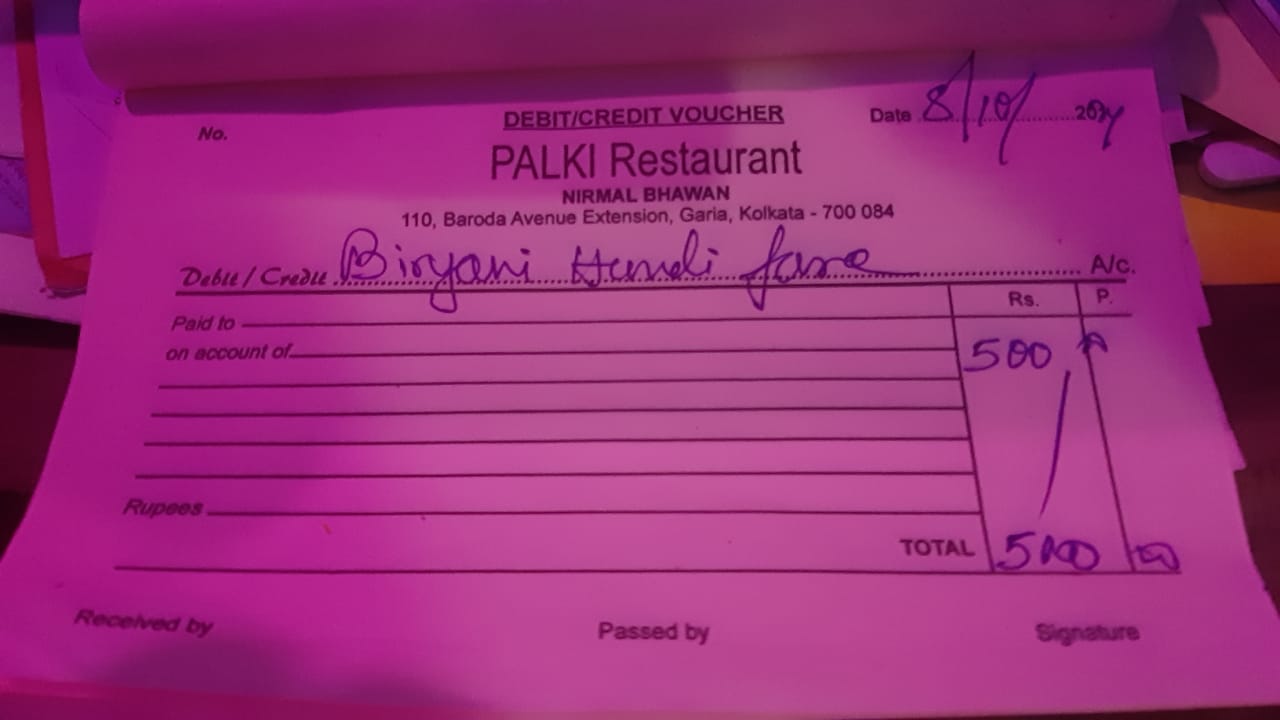 No.
DEBIT/CREDIT VOUCHER
Date 8/10/2024
PALKI Restaurant
NIRMAL BHAWAN
110, Baroda Avenue Extension, Garia, Kolkata - 700 084
Debit / Credit Biryani Handi A/c.
Rs. P.
Paid to
on account of 500
Rupees
TOTAL 500 00
Received by Passed by Signature